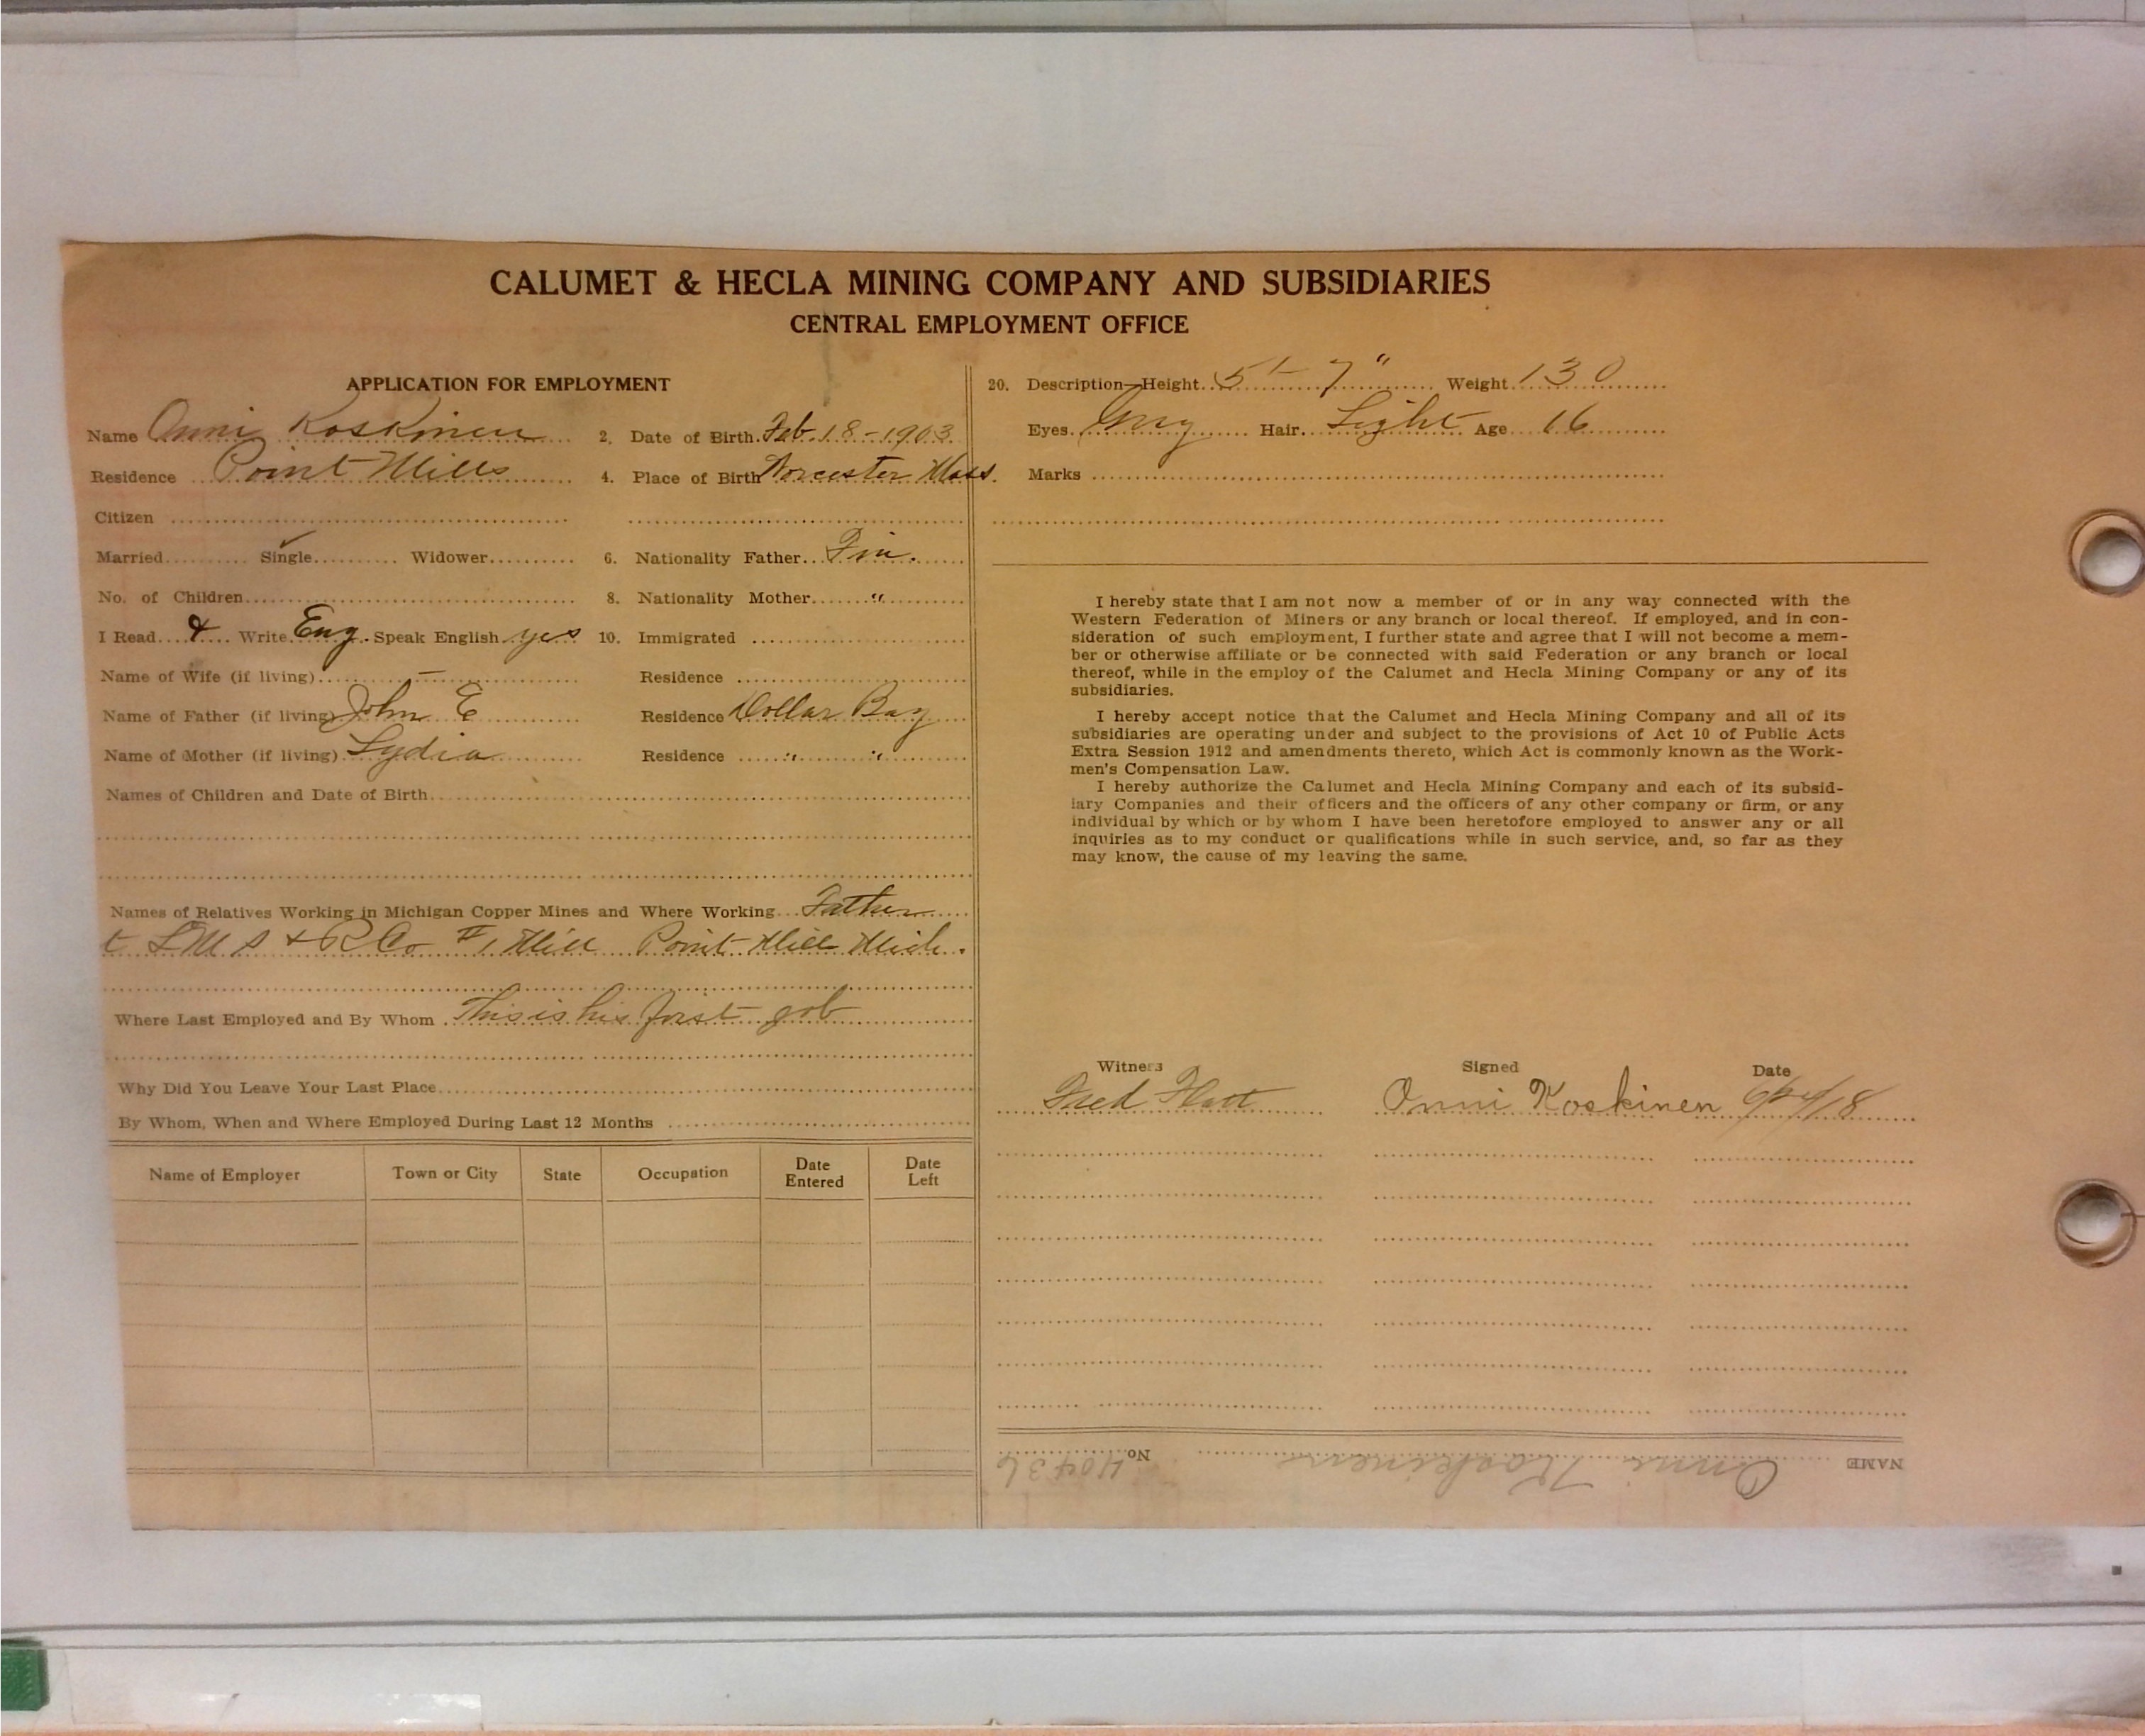 CALUMET & HECLA MINING COMPANY AND SUBSIDIARIES
CENTRAL EMPLOYMENT OFFICE
APPLICATION FOR EMPLOYMENT
Name Onni Koskinen 2. Date of Birth Feb. 18-1903
Residence Point Mills 4. Place of Birth Worcester Mass.
Citizen
Married Single ✓ Widower 6. Nationality Father Fin.
No. of Children 8. Nationality Mother "
I Read & Write Eng. Speak English yes 10. Immigrated
Name of Wife (if living) — Residence
Name of Father (if living) John E Residence Dollar Bay
Name of Mother (if living) Lydia Residence " "
Names of Children and Date of Birth
Names of Relatives Working in Michigan Copper Mines and Where Working Father
L M S & R Co #1 Mill Point Mill Mich.
Where Last Employed and By Whom This is his first job
Why Did You Leave Your Last Place
By Whom, When and Where Employed During Last 12 Months
Name of Employer Town or City State Occupation Date Entered Date Left
20. Description—Height 5' 7" Weight 130
Eyes Gray Hair Light Age 16
Marks
I hereby state that I am not now a member of or in any way connected with the
Western Federation of Miners or any branch or local thereof. If employed, and in con-
sideration of such employment, I further state and agree that I will not become a mem-
ber or otherwise affiliate or be connected with said Federation or any branch or local
thereof, while in the employ of the Calumet and Hecla Mining Company or any of its
subsidiaries.
I hereby accept notice that the Calumet and Hecla Mining Company and all of its
subsidiaries are operating under and subject to the provisions of Act 10 of Public Acts
Extra Session 1912 and amendments thereto, which Act is commonly known as the Work-
men's Compensation Law.
I hereby authorize the Calumet and Hecla Mining Company and each of its subsid-
iary Companies and their officers and the officers of any other company or firm, or any
individual by which or by whom I have been heretofore employed to answer any or all
inquiries as to my conduct or qualifications while in such service, and, so far as they
may know, the cause of my leaving the same.
Witness Signed Date
Fred Onni Koskinen 6/24/18
NAME Onni Koskinen No. 40436